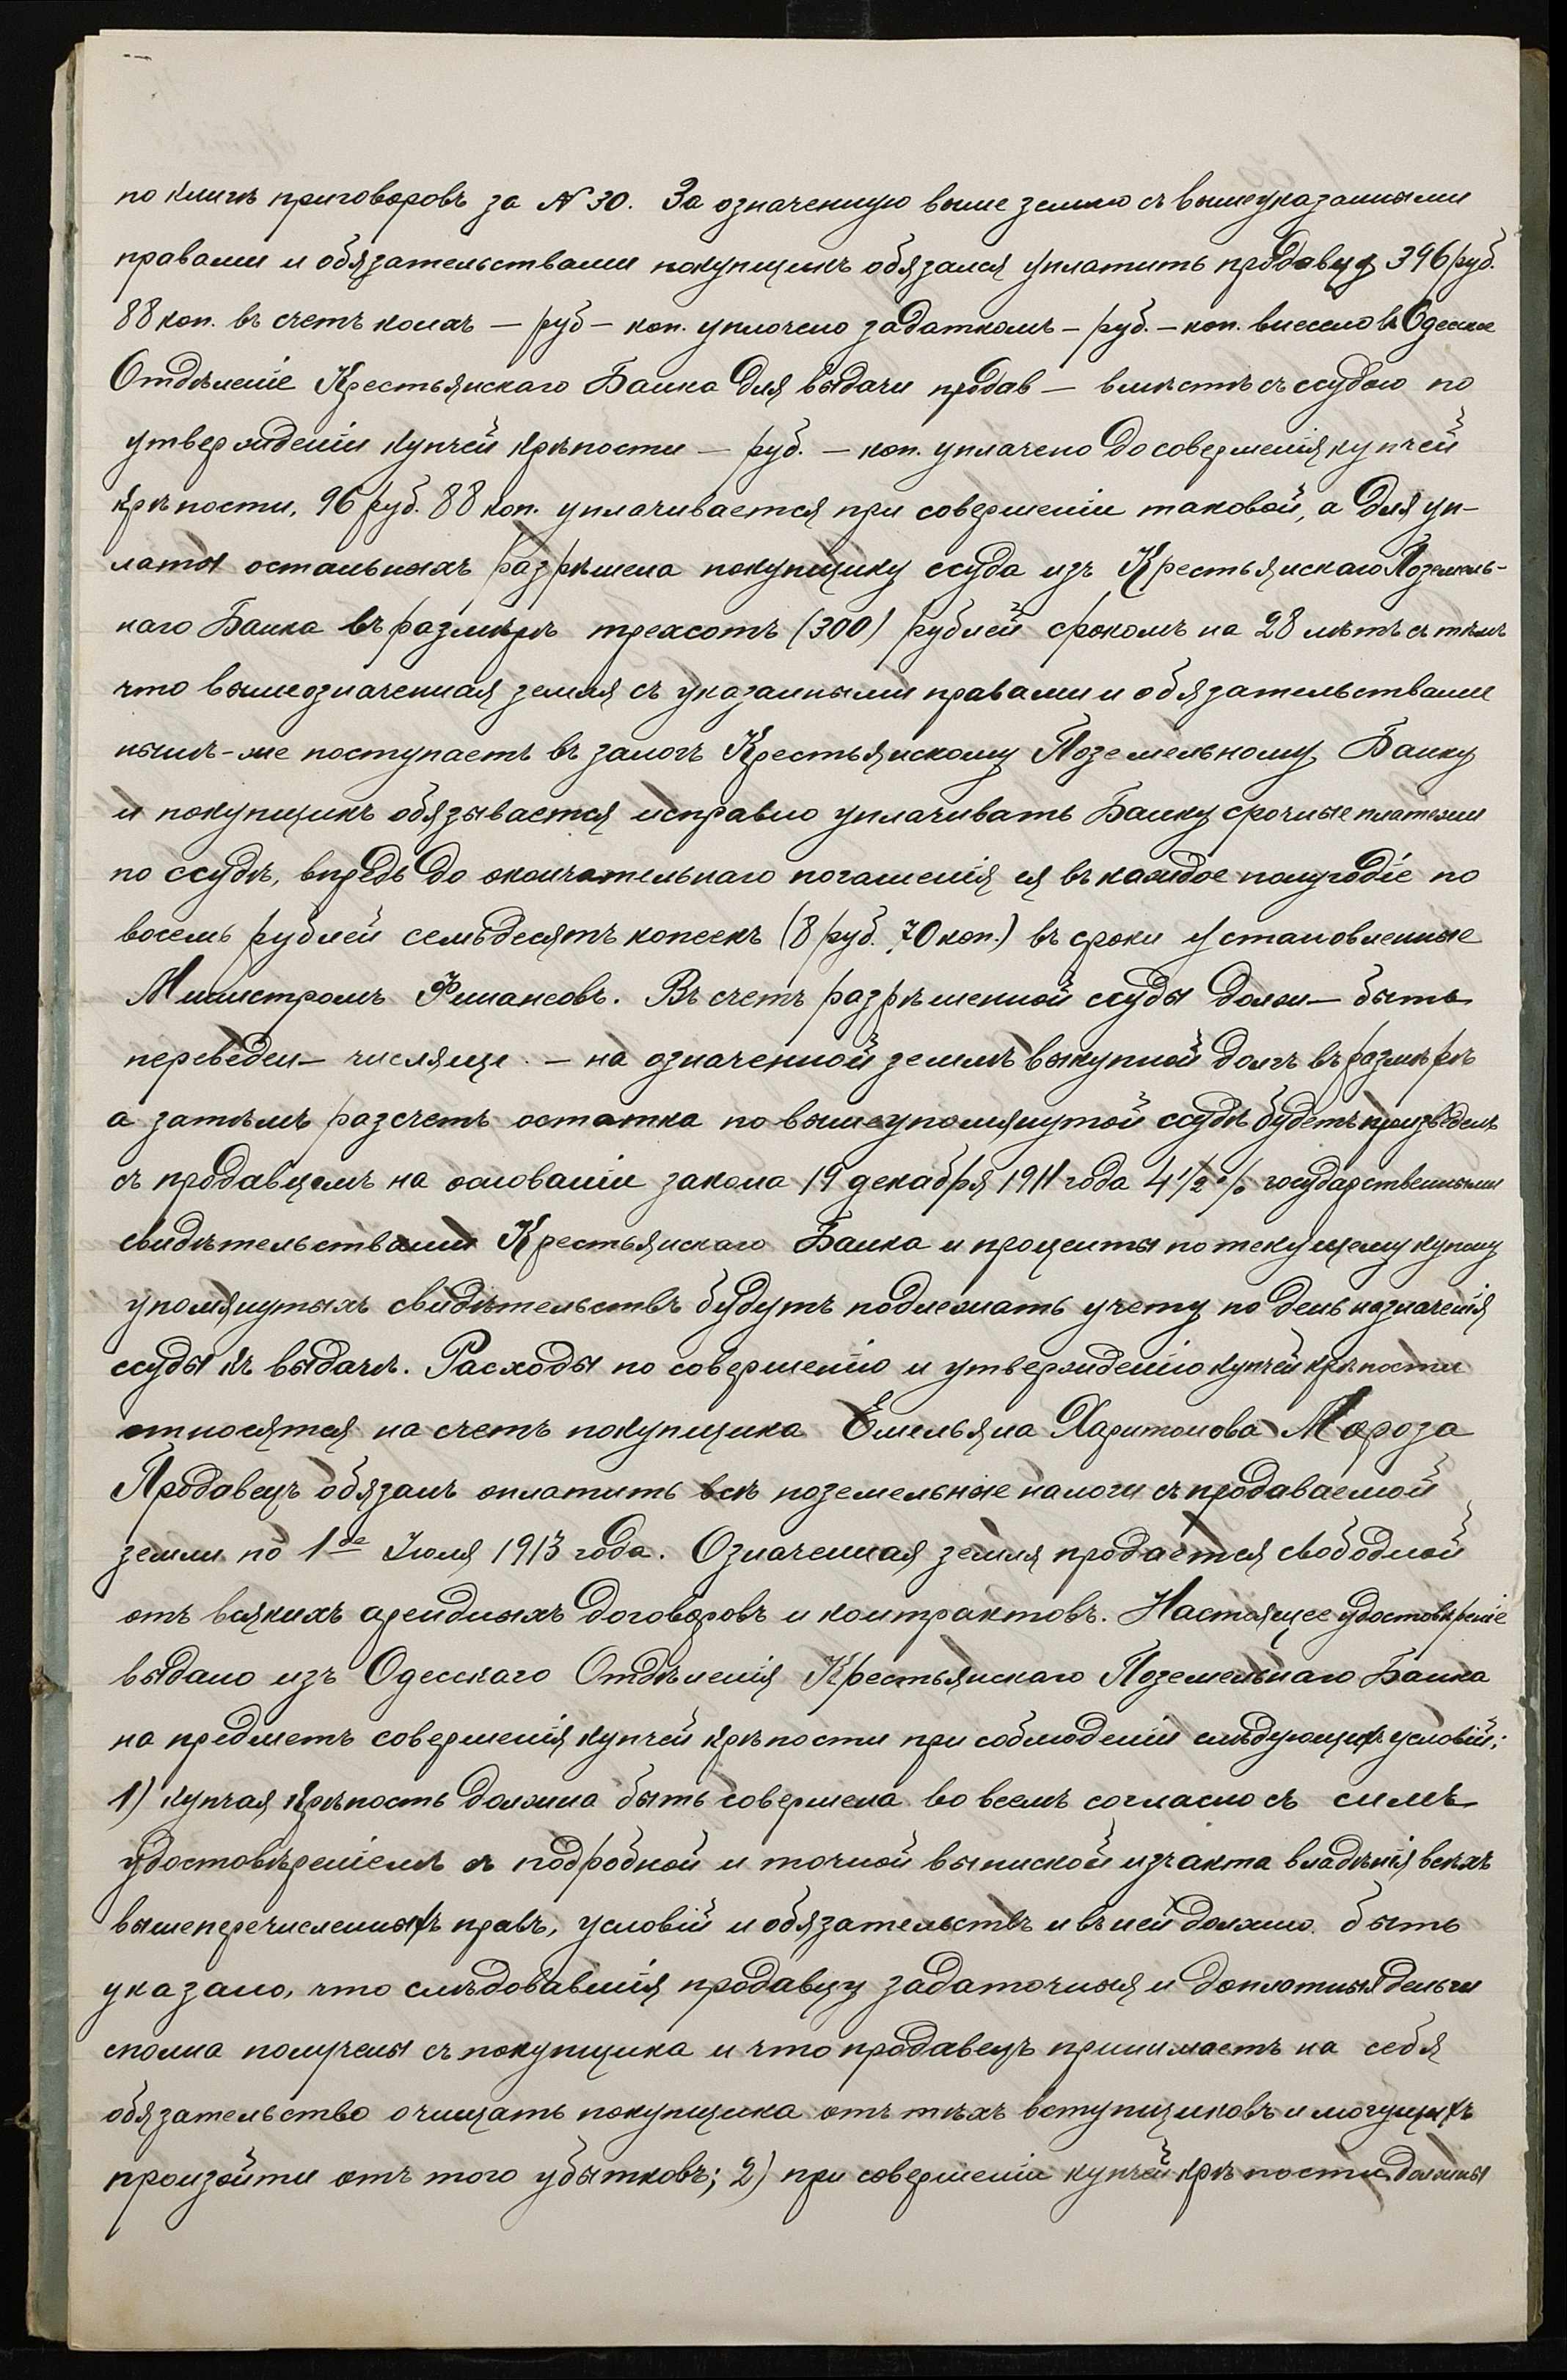 по книгѣ приговоровъ за № 30. За означенную выше землю съ вышеуказанными
правами и обязательствами покупщикъ обязался уплатить продавцу 396 руб.
88 коп. въ счетъ коихъ — руб — коп. уплочено задаткомъ — руб. — коп. внесено въ Одесское
Отдѣленіе Крестьянскаго Банка для выдачи продав — вмѣстѣ съ ссудою по
утвержденіи купчей крѣпости — руб. — коп. уплачено до совершенія купчей
крѣпости, 96 руб. 88 коп. уплачивается при совершеніи таковой, а для уп-
латы остальныхъ разрѣшена покупщику ссуда изъ Крестьянскаго Поземель-
наго Банка въ размѣрѣ трехсотъ (300) рублей срокомъ на 28 лѣтъ съ тѣмъ
что вышеозначенная земля съ указанными правами и обязательствами
нынѣ-же поступаетъ въ залогъ Крестьянскому Поземельному Банку
и покупщикъ обязывается исправно уплачивать Банку срочные платежи
по ссудѣ, впредь до окончательнаго погашенія ея въ каждое полугодіе по
восемь рублей семьдесятъ копеекъ (8 руб. 70 коп.) въ сроки установленные
Министромъ Финансовъ. Въ счетъ разрѣшенной ссуды долж— быть
переведен— числящ. — на означенной землѣ выкупной долгъ въ размѣрѣ
а затѣмъ разсчетъ остатка по вышеупомянутой ссудѣ будетъ произведенъ
съ продавцемъ на основаніи закона 19 декабря 1911 года 4 1/2 % государственными
свидѣтельствами Крестьянскаго Банка и проценты по текущему купону
упомянутыхъ свидѣтельствъ будутъ подлежать учету по день назначенія
ссуды къ выдачѣ. Расходы по совершенію и утвержденію купчей крѣпости
относятся на счетъ покупщика Емельяна Харитонова Мороза
Продавецъ обязанъ оплатить всѣ поземельные налоги съ продаваемой
земли по 1ое Іюля 1913 года. Означенная земля продается свободной
отъ всякихъ арендныхъ договоровъ и контрактовъ. Настоящее удостовѣреніе
выдано изъ Одесскаго Отдѣленія Крестьянскаго Поземельнаго Банка
на предметъ совершенія купчей крѣпости при соблюденіи слѣдующихъ условій:
1) купчая крѣпость должна быть совершена во всемъ согласно съ симъ
удостовѣреніемъ съ подробной и точной выпиской изъ акта владѣнія всѣхъ
вышеперечисленныхъ правъ, условій и обязательствъ и въ ней должно быть
указано, что слѣдовавшія продавцу задаточныя и доплотныя деньги
сполна получены съ покупщика и что продавецъ принимаетъ на себя
обязательство очищать покупщика отъ тѣхъ вступщиковъ и могущихъ
произойти отъ того убытковъ; 2) при совершеніи купчей крѣпости должны